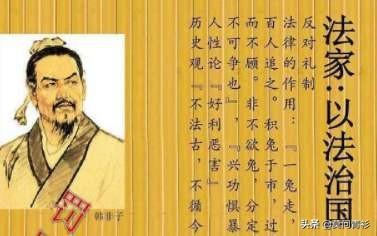 法家:以法治国
反对礼制
法律的作用:『一兔走,
百人追之。积兔于市,过
而不顾。非不欲兔,分定
不可争也』,『兴功惧暴
人性论『好利恶害』
历史观『不法古,不循今
韩非子
头条